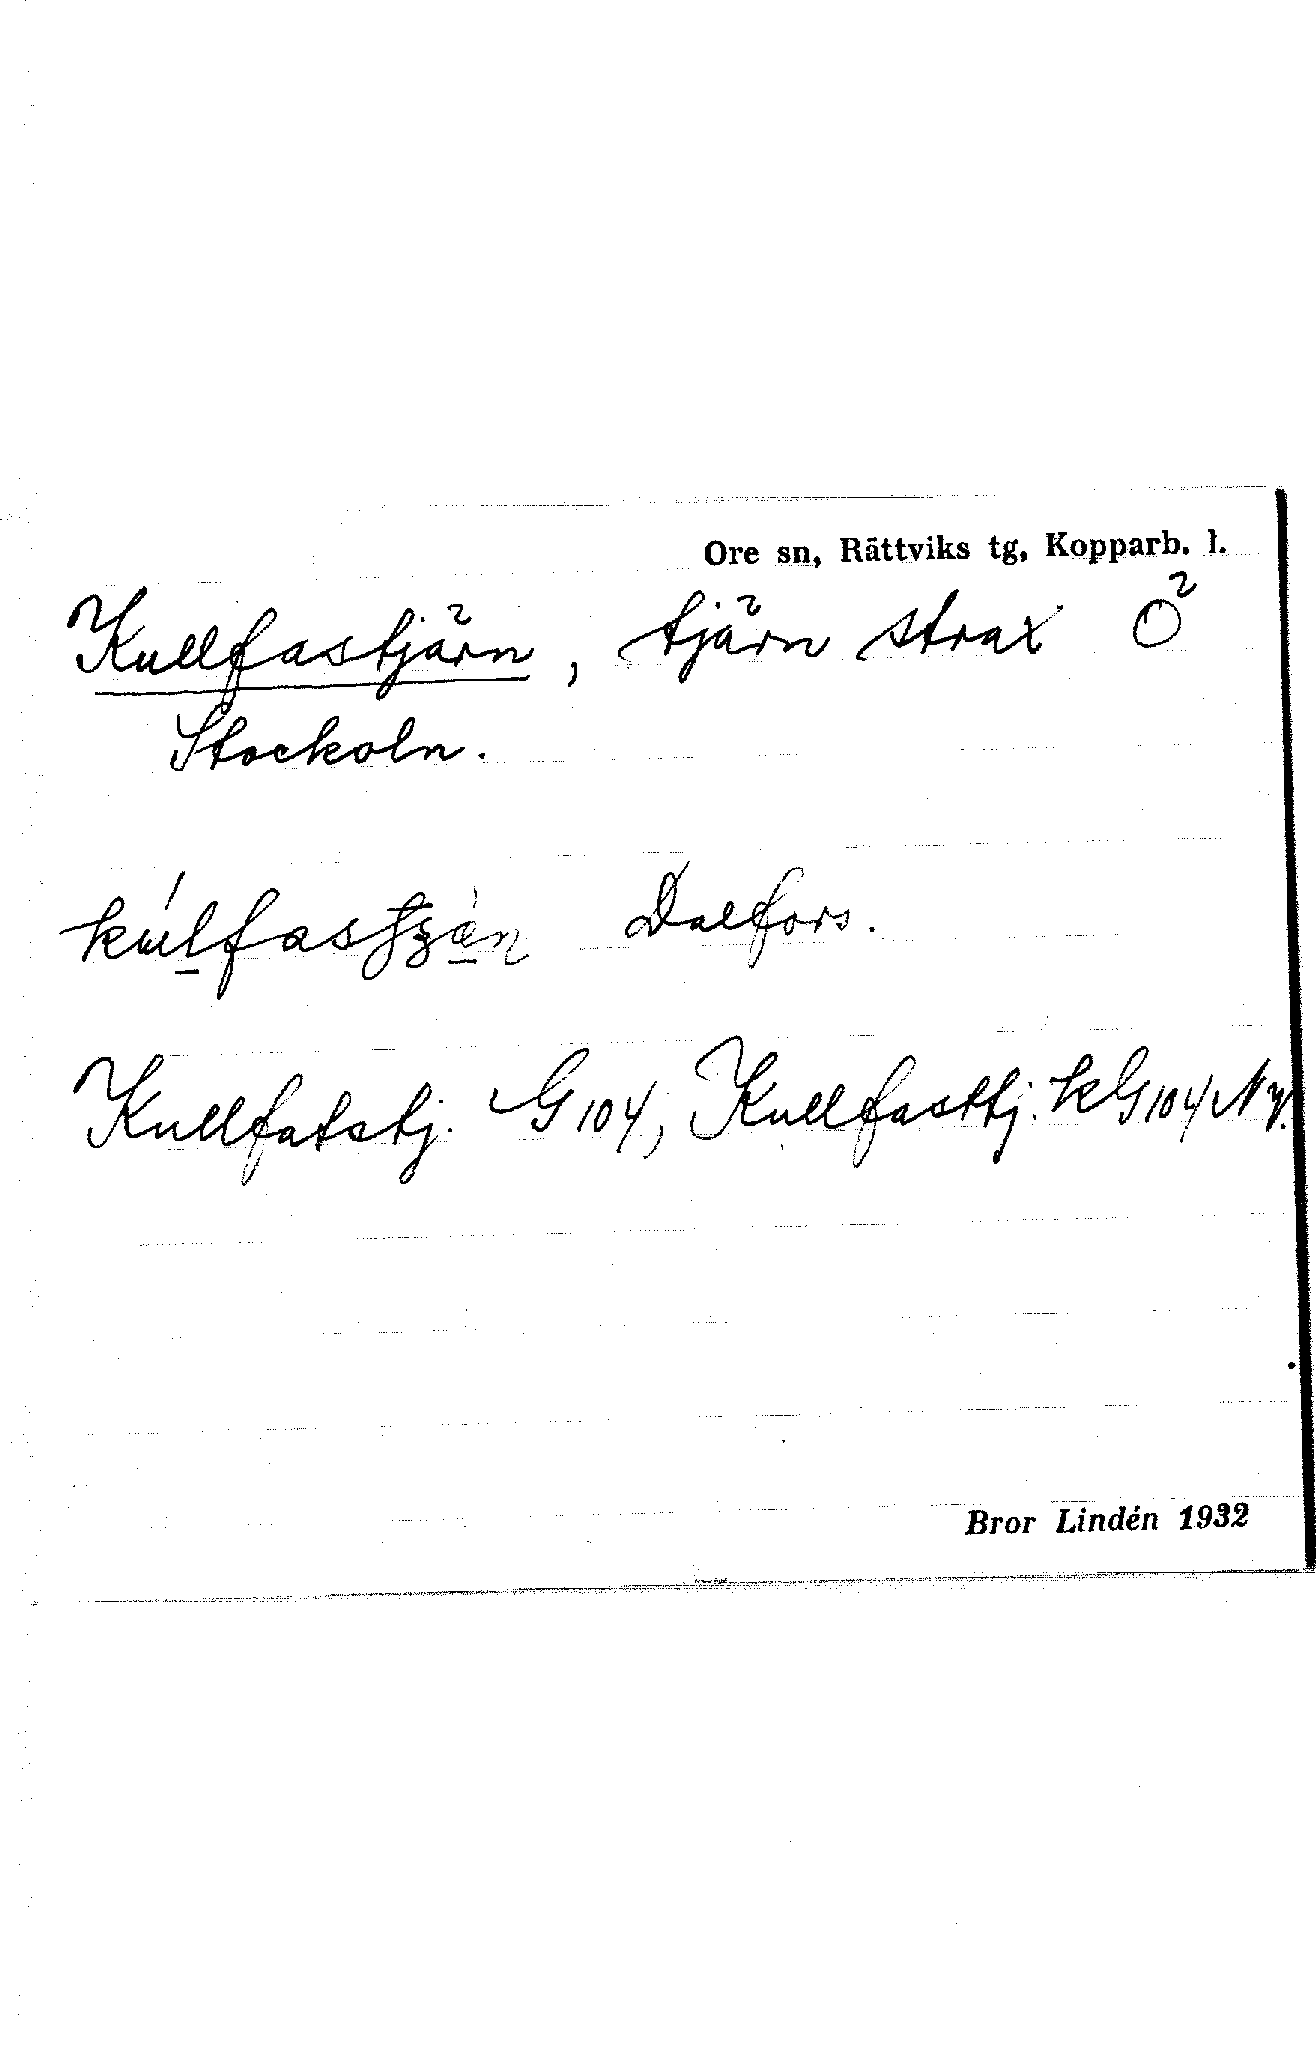 Ore sn, Rättviks tg, Kopparb. l.
Kullfastjärn, tjärn strax Ö
Stockoln.
Dalfors.
Kullfatstj. G 104, Kullfasttj. kG 104 NV.
Bror Lindén 1932